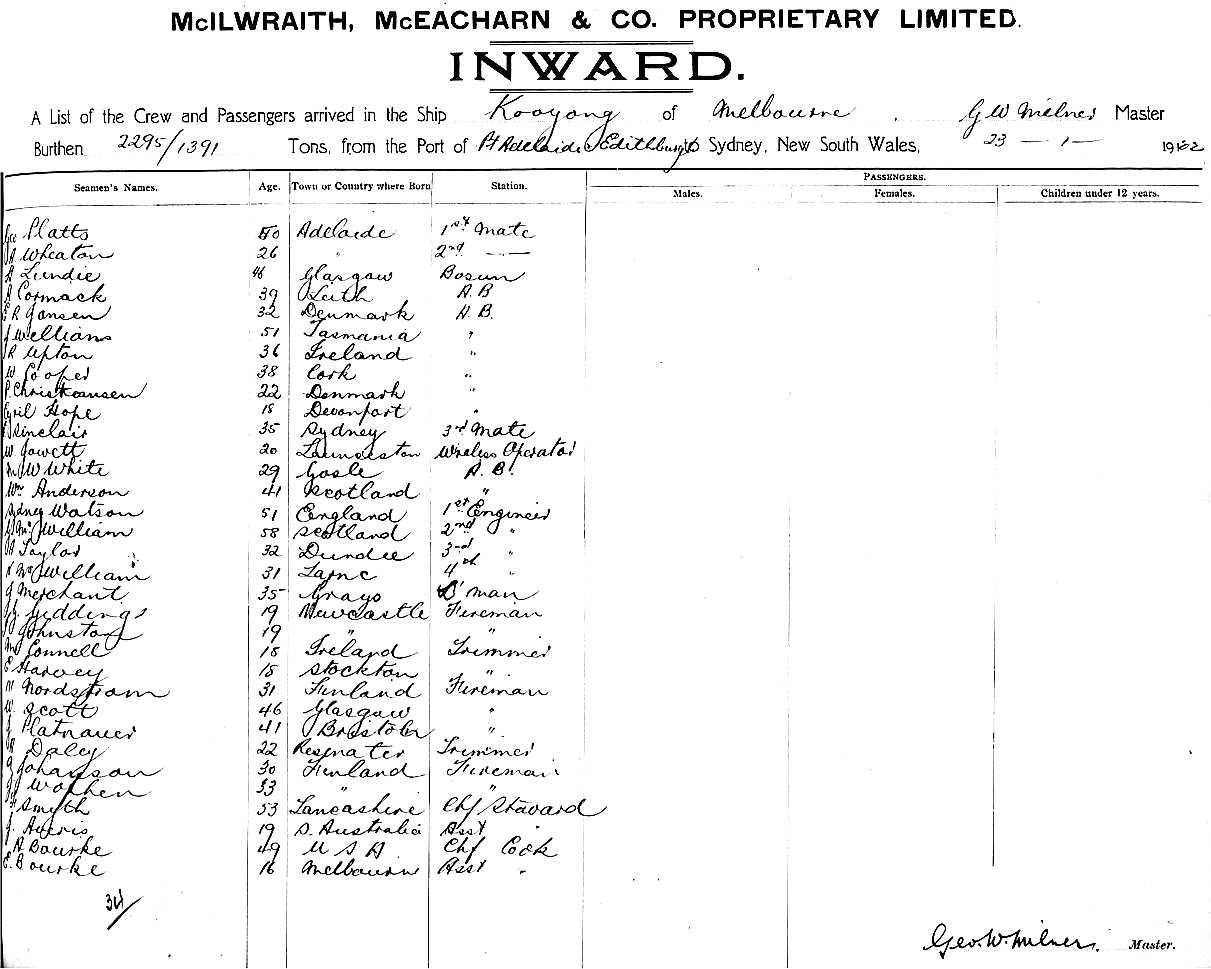 McILWRAITH, McEACHARN & CO. PROPRIETARY LIMITED.
INWARD.
A List of the Crew and Passengers arrived in the Ship Kooyong of Melbourne, G W Milner Master
Burthen 2295/1391 Tons, from the Port of Pt Adelaide Edithburgh to Sydney, New South Wales, 23 — 1 — 19
PASSENGERS.
Seamen's Names. Age. Town or Country where Born Station. Males. Females. Children under 12 years.
Geo Platts Adelaide 1st Mate
Wheaton 26 " 2nd —
Lundie 46 Glasgow Bosun
Cormack 39 Leith A.B
Jansen 32 Denmark A.B.
J Williams 51 Tasmania "
R Upton 36 Ireland "
W Cooper 38 Cork "
P. Christiansen 22 Denmark "
Cyril Hope 18 Devonport "
Sinclair 35 Sydney 3rd Mate
W. Jowett 20 Launceston Wireless Operator
W White 29 A.B.
Wm Anderson 41 Scotland "
Sydney Watson 51 England 1st Engineer
McWilliam 58 Scotland 2nd "
Taylor 32 Dundee 3rd "
McWilliam 31 Larne 4th "
J Merchant 35 Grays D'man
Giddings 19 Newcastle Fireman
Johnston 19 " "
Connell 18 Ireland Trimmer
E Harvey 18 Stockton "
Nordstrom 31 Finland Fireman
W. Scott 46 Glasgow "
J Platnauer 41 "
Daley 22 Trimmer
Johanson 30 Finland Fireman
33 " "
Smyth 53 Lancashire Chf Steward
J. Ayeris 19 S. Australia Asst "
A Bourke 49 U S A Chf Cook
E. Bourke 16 Melbourn Asst "
34/
Geo. W. Milner. Master.